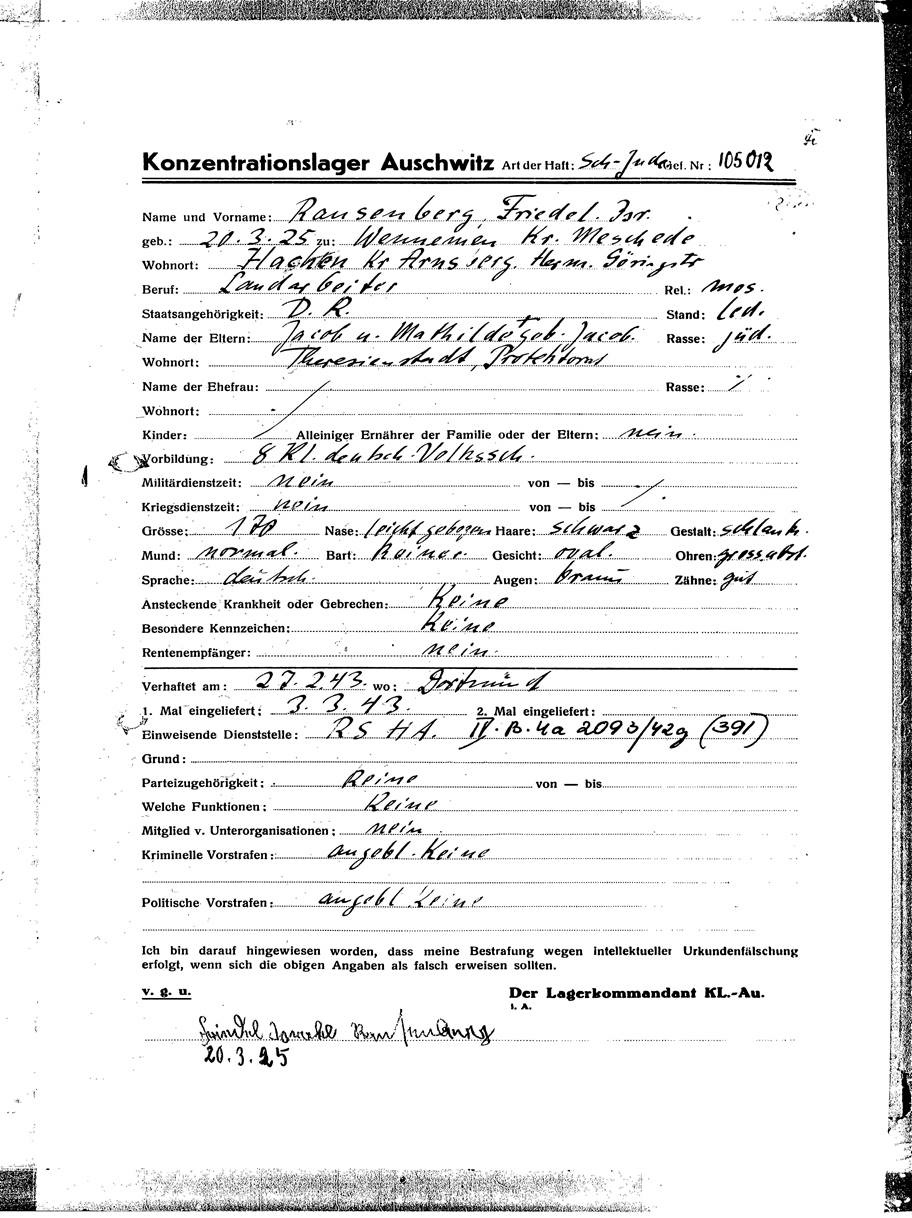 Konzentrationslager Auschwitz Art der Haft: Sch-Jude Gef. Nr: 105012
Name und Vorname: Rausenberg, Friedel. Isr.
geb.: 20.3.25 zu: Wennemen Kr. Meschede
Wohnort: Hachen Kr Arnsberg. Herm. Göringstr
Beruf: Landarbeiter Rel.: mos.
Staatsangehörigkeit: D. R. Stand: led.
Name der Eltern: Jacob u. Mathilde + geb. Jacob. Rasse: jüd.
Wohnort: Theresienstadt, Protektorat
Name der Ehefrau: Rasse:
Wohnort:
Kinder: Alleiniger Ernährer der Familie oder der Eltern: nein.
Vorbildung: 8 Kl. deutsch. Volkssch.
Militärdienstzeit: nein von — bis
Kriegsdienstzeit: nein von — bis
Grösse: 170 Nase: leicht gebogen Haare: schwarz Gestalt: schlank.
Mund: normal. Bart: Keinen. Gesicht: oval. Ohren: gross abst.
Sprache: deutsch. Augen: braun Zähne: gut
Ansteckende Krankheit oder Gebrechen: Keine
Besondere Kennzeichen: Keine
Rentenempfänger: nein.
Verhaftet am: 27.2.43. wo: Dortmund
1. Mal eingeliefert: 3.3.43. 2. Mal eingeliefert:
Einweisende Dienststelle: RSHA. IV. B. 4a 2093/42g (391)
Grund:
Parteizugehörigkeit: Keine von — bis
Welche Funktionen: Keine
Mitglied v. Unterorganisationen: nein
Kriminelle Vorstrafen: angebl. Keine
Politische Vorstrafen: angebl. Keine
Ich bin darauf hingewiesen worden, dass meine Bestrafung wegen intellektueller Urkundenfälschung
erfolgt, wenn sich die obigen Angaben als falsch erweisen sollten.
v. g. u. Der Lagerkommandant KL.-Au.
i. A.
20.3.25